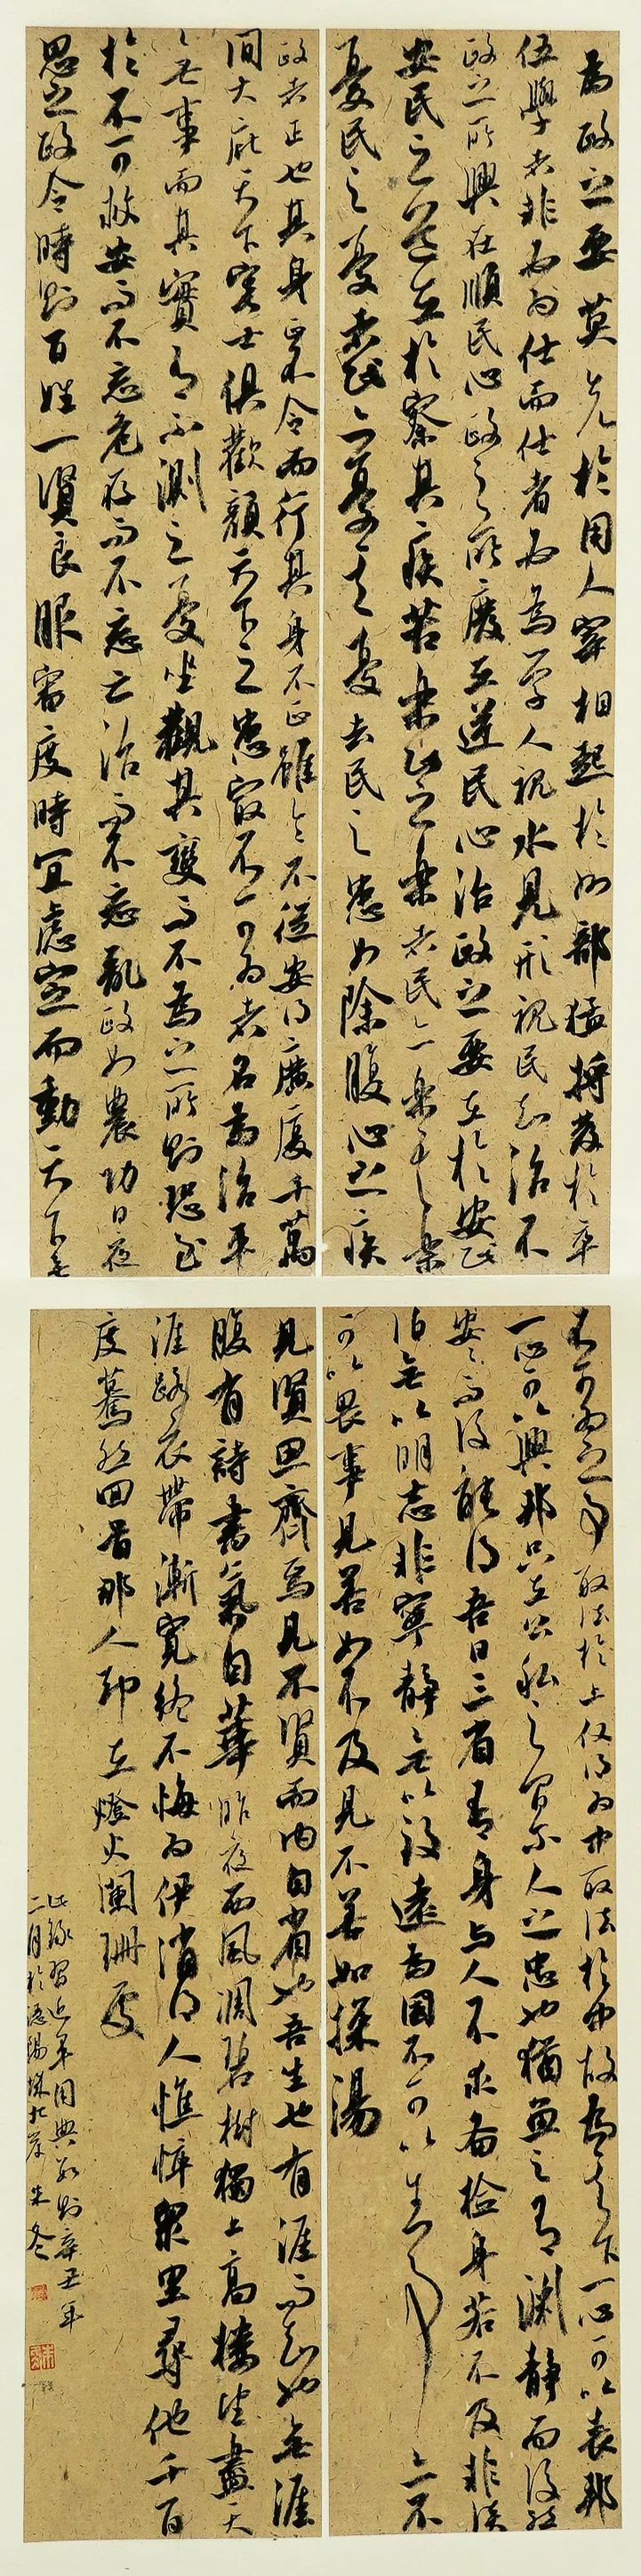 為政之要莫先於用人宰相起於州部猛將發於卒
伍學者非必為仕而仕者必為學人視水見形視民知治不
政之所興在順民心政之所廢在逆民心治政之要在於安民
安民之道在於察其疾苦樂民之樂者民亦樂其樂
憂民之憂者民亦憂其憂去民之患如除腹心之疾
政者正也其身正不令而行其身不正雖令不從安得廣廈千萬
間大庇天下寒士俱歡顏天下之患最不可為者名為治平
無事而其實有不測之憂坐觀其變而不為之所則恐至
於不可救安而不忘危存而不忘亡治而不忘亂政如農功日夜
思之政令時則百姓一賢良服審度時宜慮定而動天下無
不可為之事取法於上僅得為中取法於中故為其下一心可以喪邦
一心可以興邦只在公私之間爾人之忠也猶魚之有淵靜而後能
安安而後能得吾日三省吾身與人不求備檢身若不及非淡
泊無以明志非寧靜無以致遠為國不可以生事亦不
可以畏事見善如不及見不善如探湯
見賢思齊焉見不賢而內自省也吾生也有涯而知也無涯
腹有詩書氣自華昨夜西風凋碧樹獨上高樓望盡天
涯路衣帶漸寬終不悔為伊消得人憔悴眾里尋他千百
度驀然回首那人卻在燈火闌珊處
此錄習近平用典數則辛丑年
二月於北岸朱冬